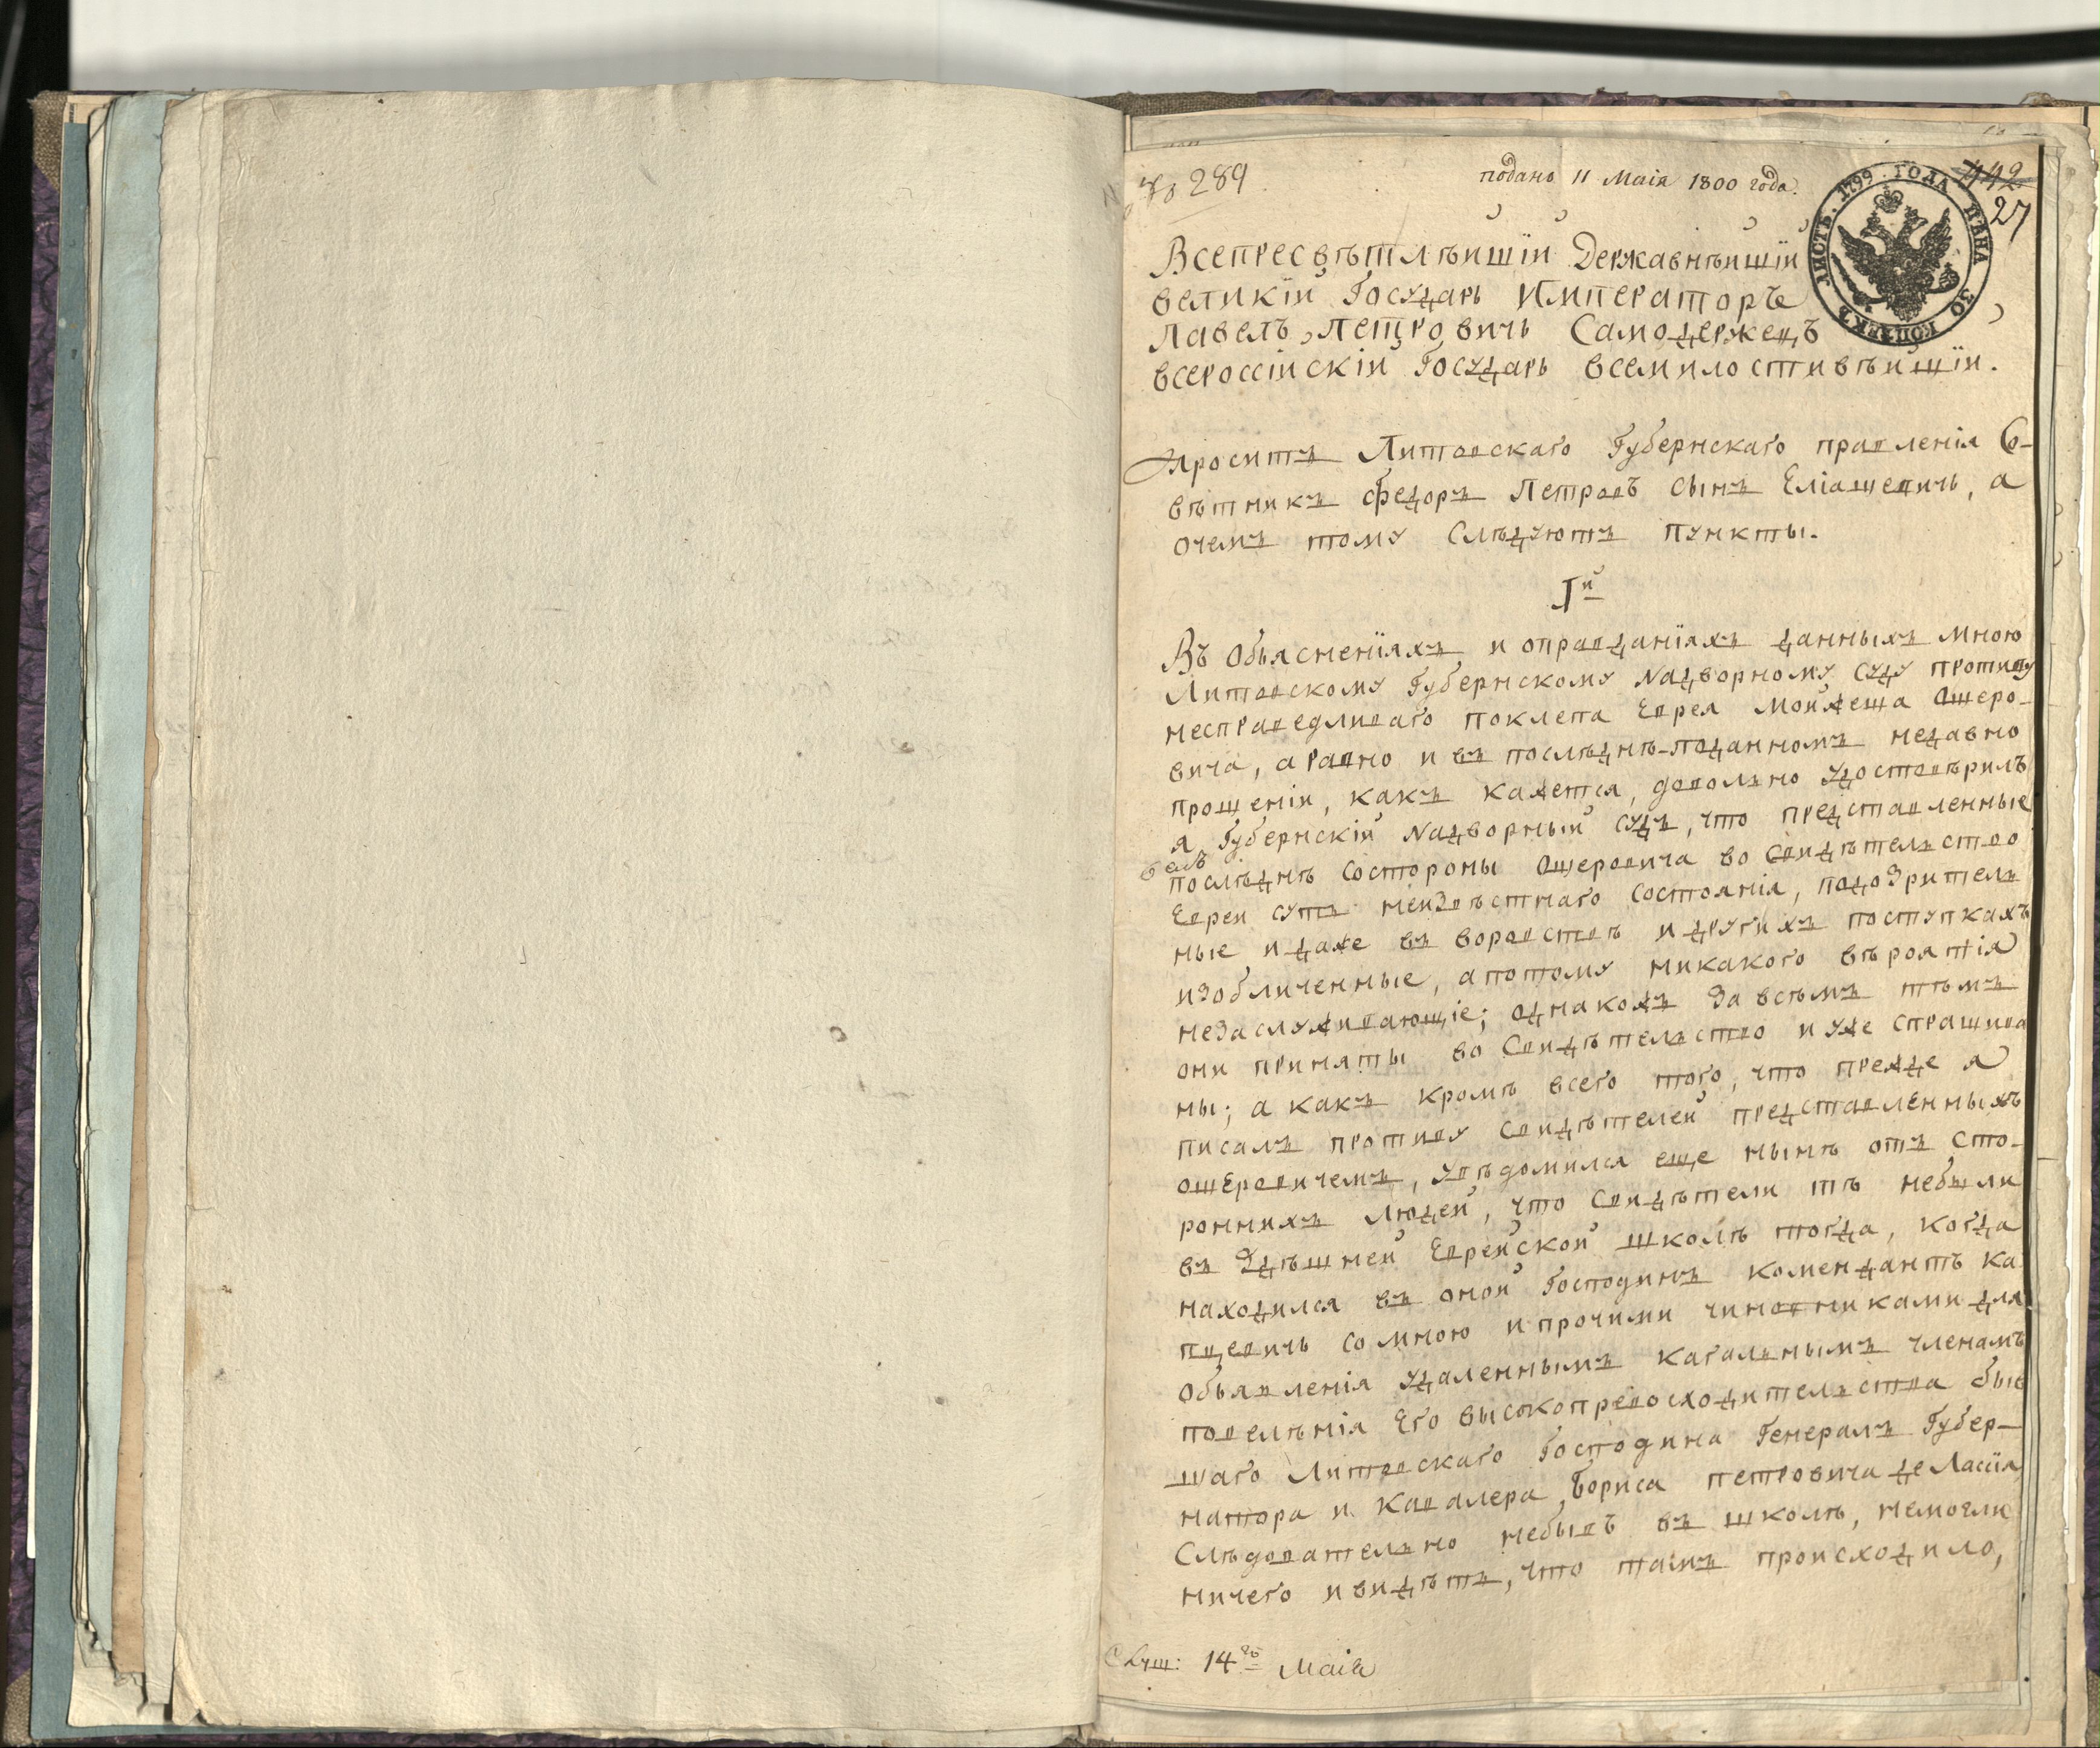 № 289
подано 11 Маія 1800 года.
442
27
ЛИСТЪ. 1799 ГОДА ЦѢНА 30 КОПѢЕКЪ
Всепресвѣтлѣйшій Державнѣйшій
великій Государь Императоръ
Павелъ Петровичь Самодержецъ
всероссійскій Государь всемилостивѣйшій.
Проситъ Литовскаго Губернскаго правленія Со-
вѣтникъ Федоръ Петровъ сынъ Еліашевичь, а
очемъ тому Слѣдуютъ пункты.
1й
Въ Объясненіяхъ и оправданіяхъ данныхъ мною
Литовскому Губернскому Надворному Суду противу
несправедливаго поклепа Еврея Мойжеша Ошеро-
вича, а равно и въ послѣднѣ-поданномъ недавно
прошеніи, какъ кажется, довольно удостовѣрилъ
я Губернскій Надворный судъ, что представленные
послѣднѣ Состороны Ошеровича во Свидѣтельство
Евреи суть неизвѣстнаго состоянія, подозритель
ные и даже въ воровствѣ и другихъ поступкахъ
изобличенные, а потому никакого вѣроятія
незаслуживающіе; однакожъ за всѣмъ тѣмъ
они приняты во Свидѣтельство и уже спрашива
ны; а какъ кромѣ всего того, что прежде я
писалъ противу Свидѣтелей представленныхъ
ошеровичемъ, увѣдомился еще нынѣ отъ сто-
роннихъ людей, что Свидѣтели тѣ небыли
въ Здѣшней Еврейской школѣ тогда, когда
находился въ оной Господинъ комендантъ Ка
пцевичь со мною и прочими чиновниками для
Объявленія удаленнымъ кагальнымъ членамъ
повелѣнія Его высокопревосходительства быв
шаго Литовскаго Господина Генералъ Губер-
натора и Кавалера Бориса петровича де Лассія
Слѣдовательно небывъ въ школѣ, немогли
ничего и видѣть, что тамъ происходило,
Слуш: 14го Маія